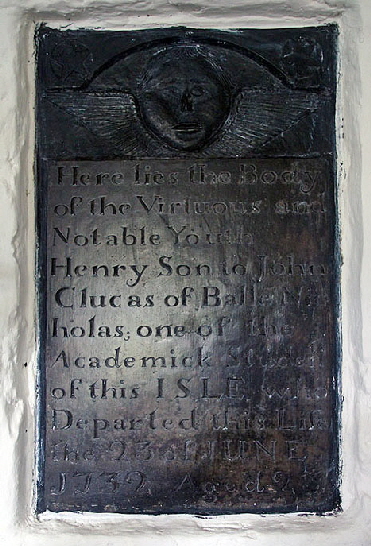 Here lies the Body
of the Virtuous and
Notable Youth
Henry Son to John
Clucas of Balle
holas, one of the
Academick
of this ISLE who
Departed this Life
the 23 of IUNE
Aged